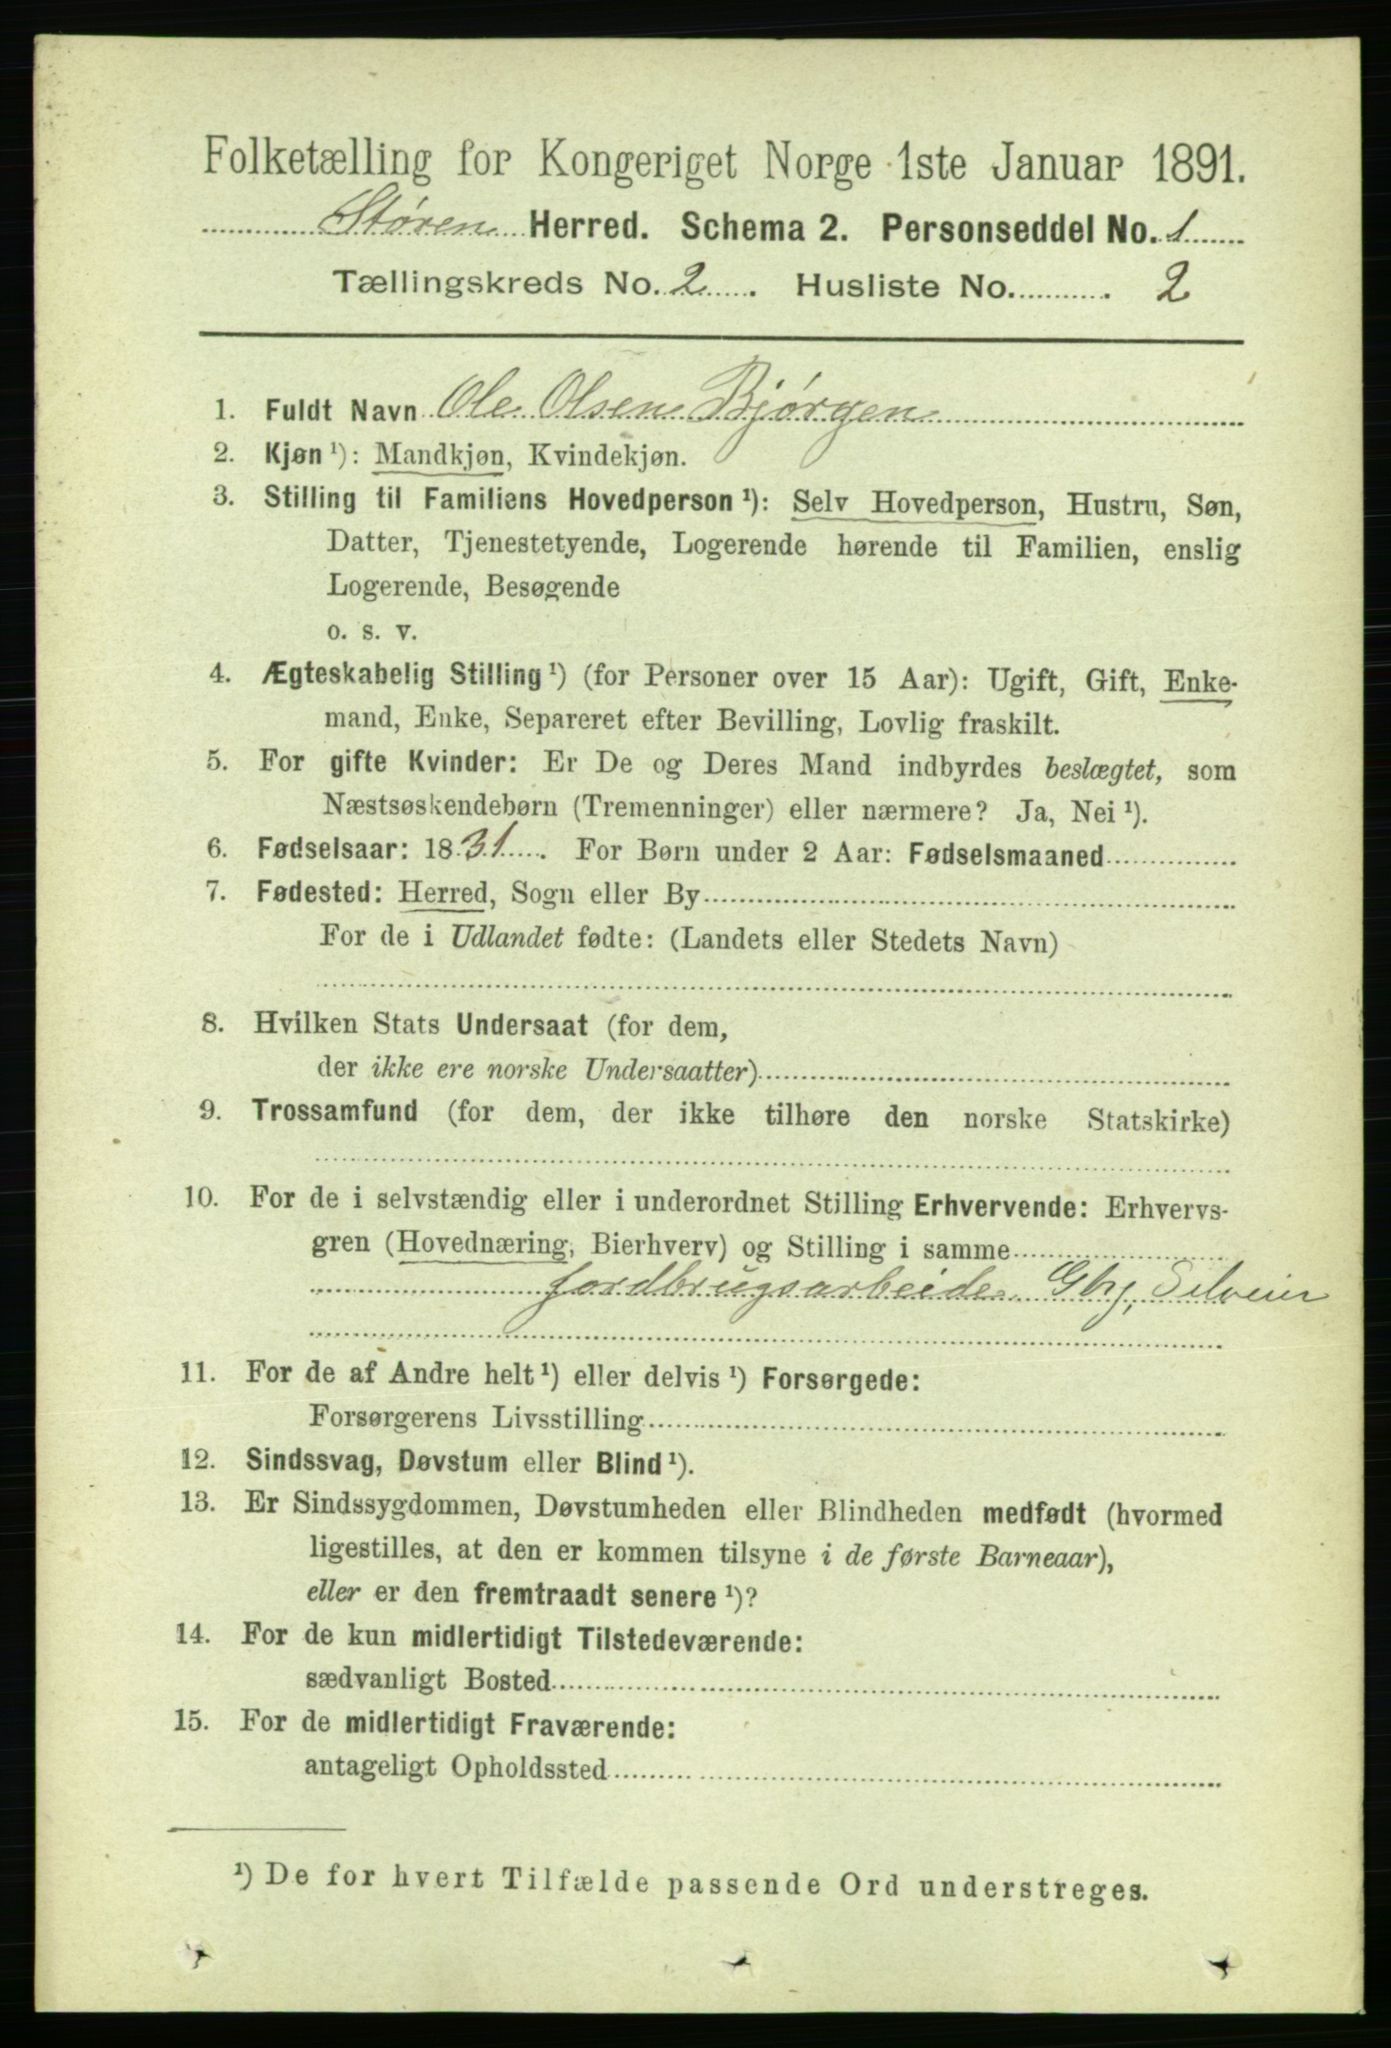 Folketælling for Kongeriget Norge 1ste Januar 1891.
Støren Herred. Schema 2. Personseddel No. 1
Tællingskreds No. 2. Husliste No. 2
1. Fuldt Navn Ole Olsen Bjørgen
2. Kjøn ¹): Mandkjøn, Kvindekjøn.
3. Stilling til Familiens Hovedperson ¹): Selv Hovedperson, Hustru, Søn,
Datter, Tjenestetyende, Logerende hørende til Familien, enslig
Logerende, Besøgende
o. s. v.
4. Ægteskabelig Stilling ¹) (for Personer over 15 Aar): Ugift, Gift, Enke-
mand, Enke, Separeret efter Bevilling, Lovlig fraskilt.
5. For gifte Kvinder: Er De og Deres Mand indbyrdes beslægtet, som
Næstsøskendebørn (Tremenninger) eller nærmere? Ja, Nei ¹).
6. Fødselsaar: 1831. For Børn under 2 Aar: Fødselsmaaned
7. Fødested: Herred, Sogn eller By
For de i Udlandet fødte: (Landets eller Stedets Navn)
8. Hvilken Stats Undersaat (for dem,
der ikke ere norske Undersaatter)
9. Trossamfund (for dem, der ikke tilhøre den norske Statskirke)
10. For de i selvstændig eller i underordnet Stilling Erhvervende: Erhvervs-
gren (Hovednæring, Bierhverv) og Stilling i samme
Jordbrugsarbeider
11. For de af Andre helt ¹) eller delvis ¹) Forsørgede:
Forsørgerens Livsstilling
12. Sindssvag, Døvstum eller Blind ¹).
13. Er Sindssygdommen, Døvstumheden eller Blindheden medfødt (hvormed
ligestilles, at den er kommen tilsyne i de første Barneaar),
eller er den fremtraadt senere ¹)?
14. For de kun midlertidigt Tilstedeværende:
sædvanligt Bosted
15. For de midlertidigt Fraværende:
antageligt Opholdssted
¹) De for hvert Tilfælde passende Ord understreges.